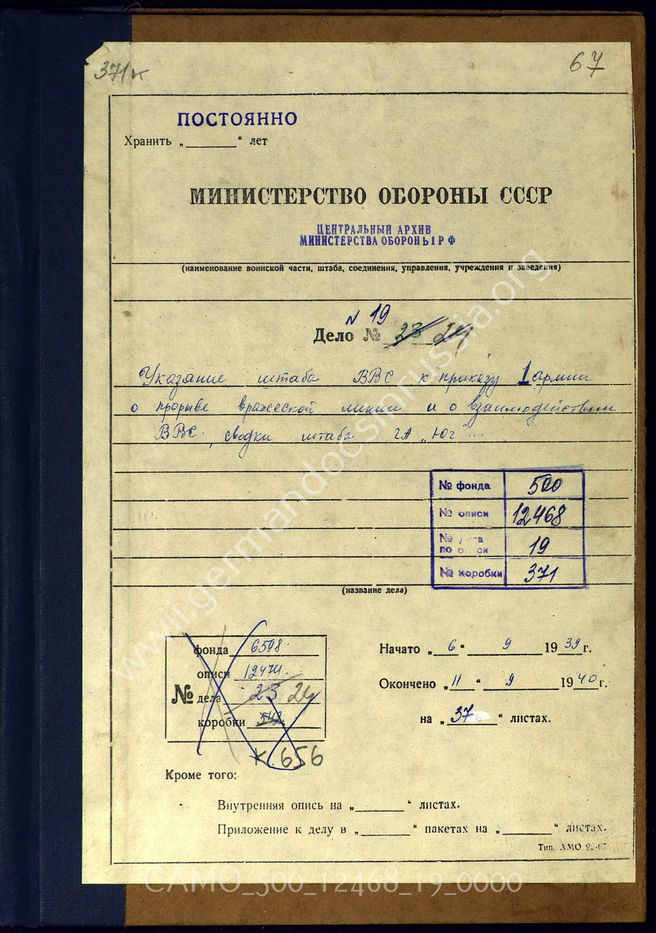 371к
67
ПОСТОЯННО
Хранить „ “ лет
МИНИСТЕРСТВО ОБОРОНЫ СССР
ЦЕНТРАЛЬНЫЙ АРХИВ
МИНИСТЕРСТВА ОБОРОНЫ РФ
(наименование воинской части, штаба, соединения, управления, учреждения и заведения)
N 19
Дело № 23 24
Указание штаба ВВС к приказу 1 армии
о прорыве вражеской линии и о взаимодействии
ВВС, сводки штаба ГА „Юг“...
№ фонда 500
№ описи 12468
№ дела
по описи 19
№ коробки 371
(название дела)
фонда 6598
описи 12474
№ дела 23 24
коробки
к 656
Начато „ 6 “ 9 1939 г.
Окончено „ 11 “ 9 1940 г.
на „ 37 “ листах.
Кроме того:
Внутренняя опись на „ “ листах.
Приложение к делу в „ “ пакетах на „ “ листах.
Тип. АМО
www.germandocsinrussia.org
CAMO_500_12468_19_0000